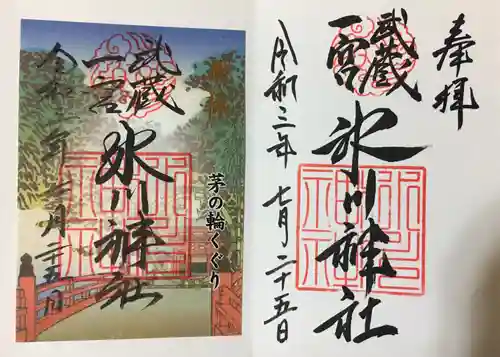 奉拝
武蔵
一宮
氷川神社
令和三年七月二十五日
奉拝
武蔵
一宮
氷川神社
令和三年七月二十五日
茅の輪くぐり